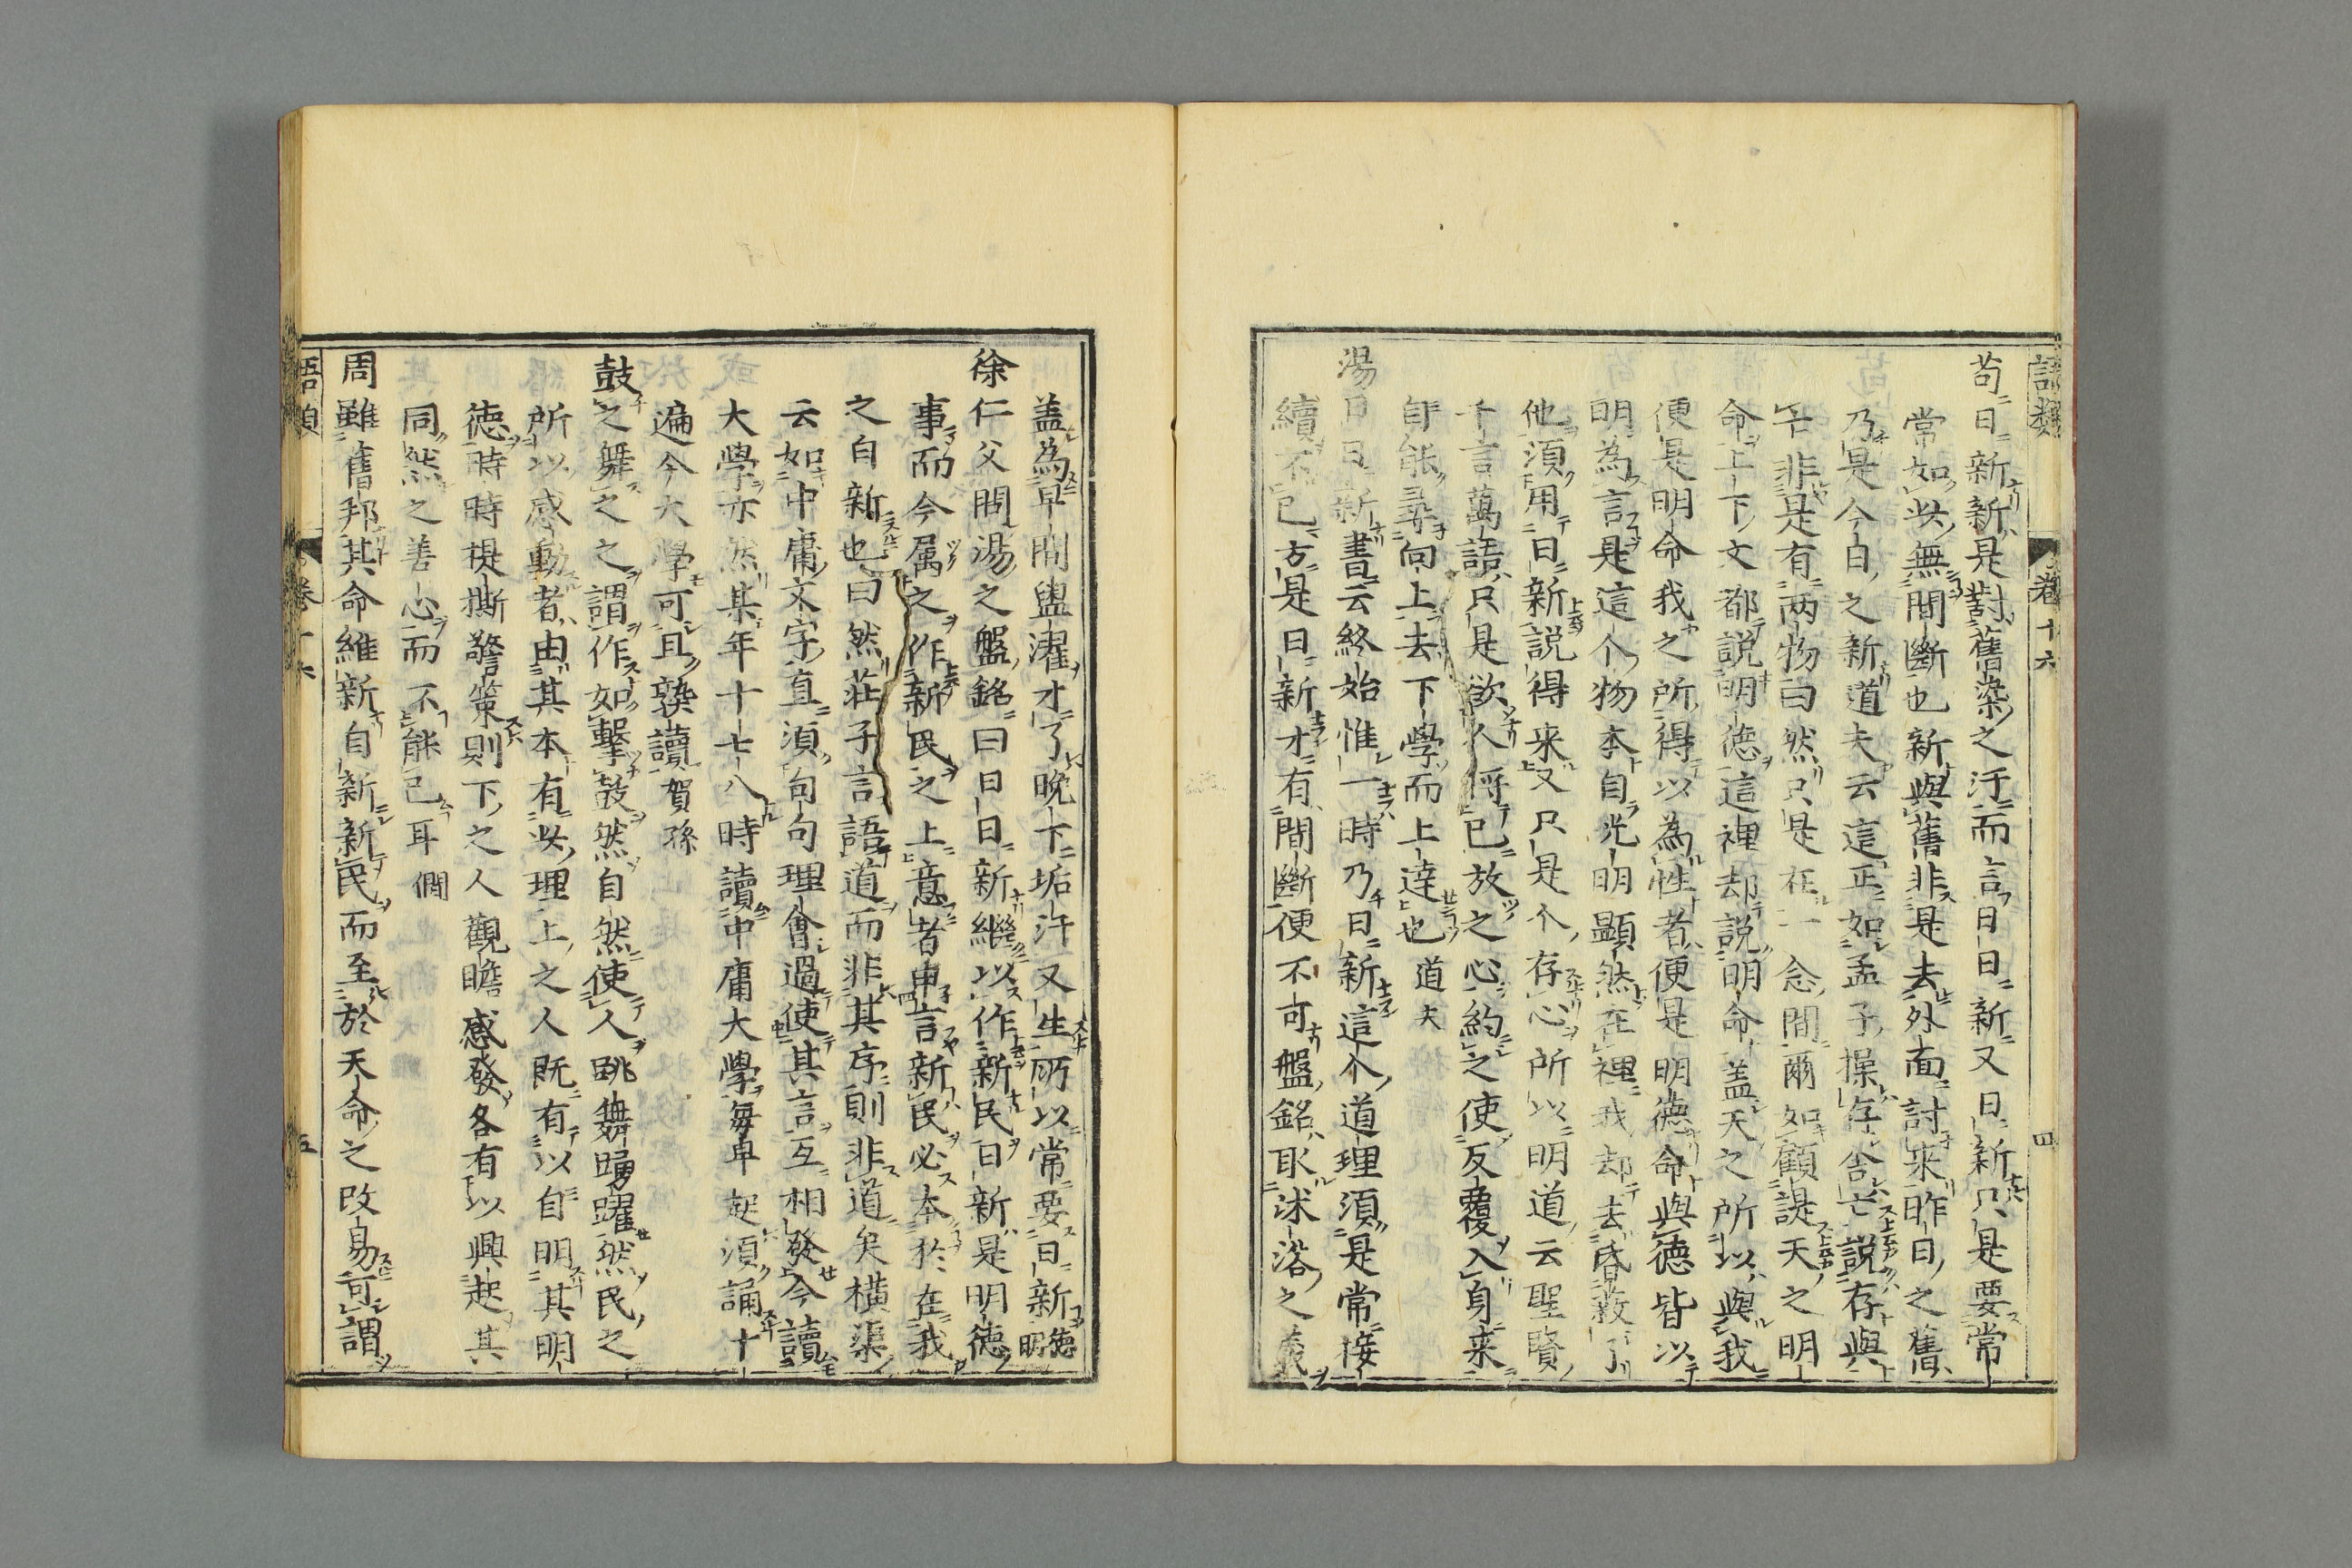 語類
卷十六
四
苟日新新是對舊染之汙而言日日新又日新只是要常
常如此無間斷也新與舊非是去外面討來昨日之舊
乃是今日之新道夫云這正如孟子操存舍亡說存與
亡非是有兩物曰然只是在一念間爾如顧諟天之明
命上下文都說明德這裡却說明命蓋天之所以與我
便是明命我之所得以為性者便是明德命與德皆以
明為言是這个物本自光明顯然在裡我却去昏蔽了
他須用日新說得来又只是个存心所以明道云聖賢
千言萬語只是欲人将已放之心約之使反覆入身来
自能尋向上去下學而上達也道夫
湯日日新書云終始惟一時乃日新這个道理須是常接
續不已方是日新才有間斷便不可盤銘取沐浴之義
蓋為早間盥濯才了晚下垢汙又生所以常要日新德明
徐仁父問湯之盤銘曰日日新繼以作新民日新是明德
事而今属之作新民之上意者申言新民必本於在我
之自新也曰然莊子言語道而非其序則非道矣橫渠
云如中庸文字直須句句理會過使其言互相發今讀
大學亦然某年十七八時讀中庸大學每早起須誦十
遍今大學可且熟讀賀孫
鼓之舞之之謂作如擊鼓然自然使人跳舞踴躍然民之
所以感動者由其本有此理上之人既有以自明其明
德時時提撕警策則下之人觀瞻感發各有以興起其
同然之善心而不能已耳僩
周雖舊邦其命維新自新新民而至於天命之改易可謂
語類
卷十六
五